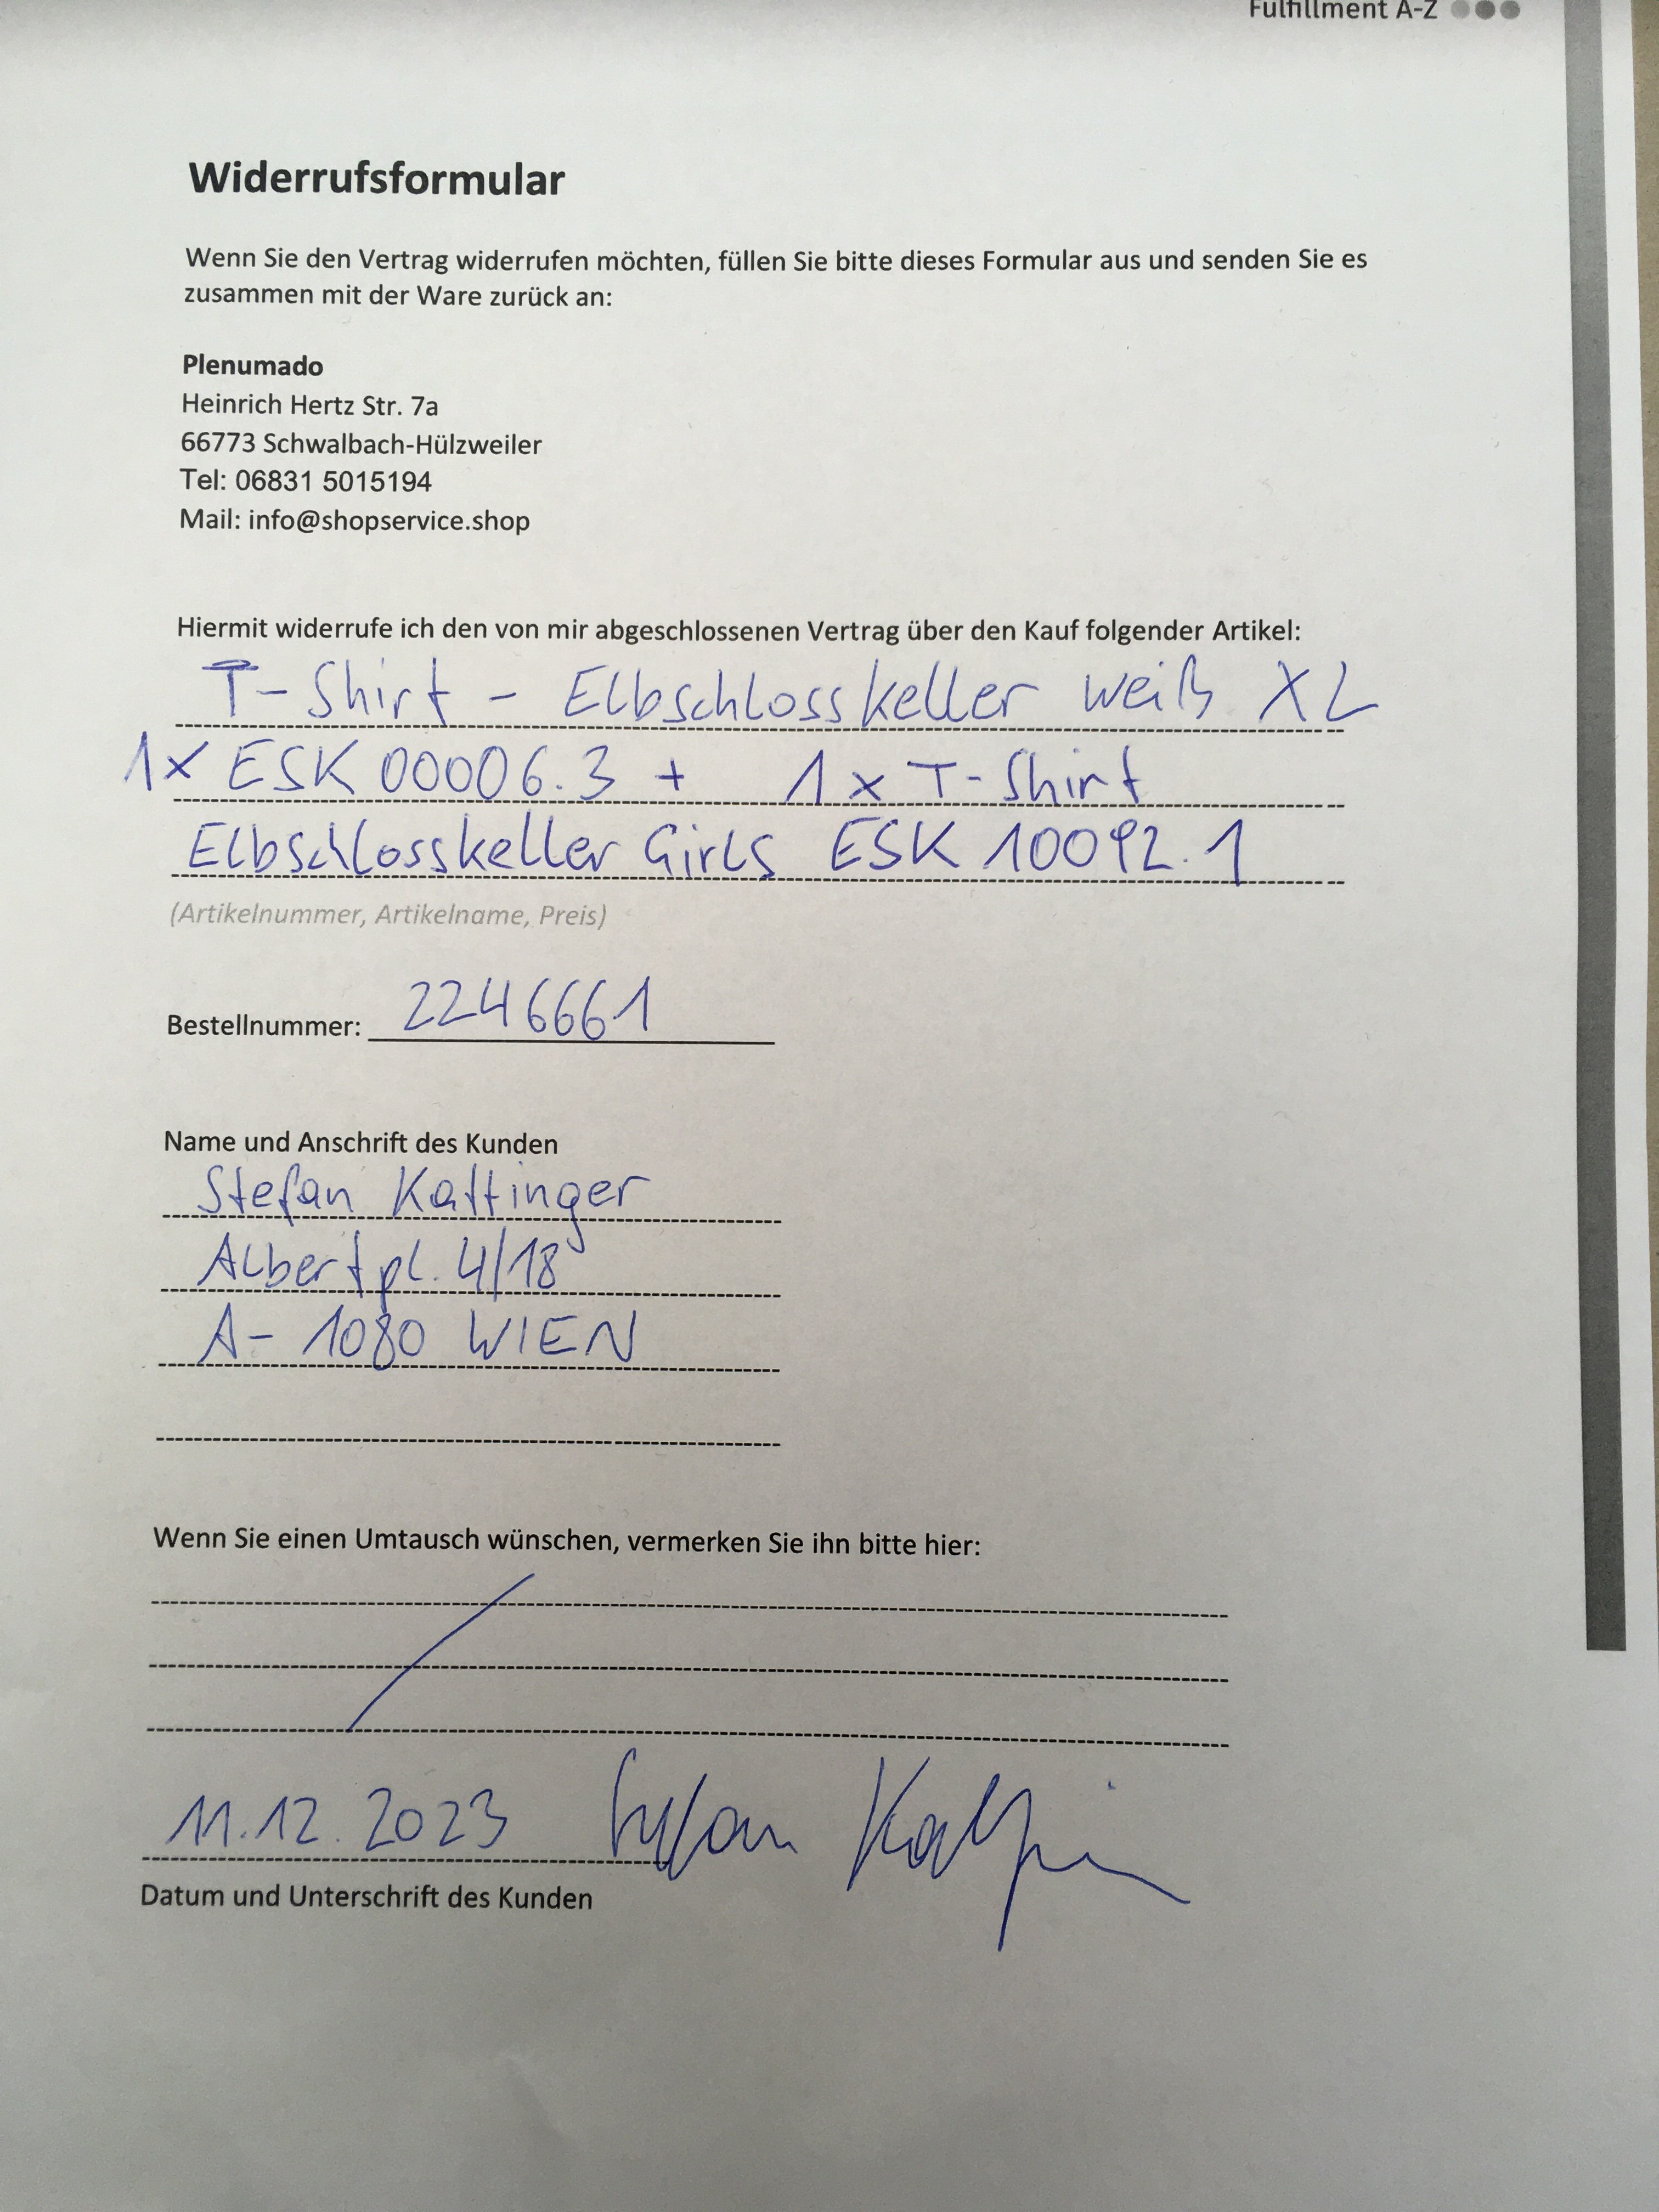 Fulfillment A-Z
Widerrufsformular
Wenn Sie den Vertrag widerrufen möchten, füllen Sie bitte dieses Formular aus und senden Sie es
zusammen mit der Ware zurück an:
Plenumado
Heinrich Hertz Str. 7a
66773 Schwalbach-Hülzweiler
Tel: 06831 5015194
Mail: info@shopservice.shop
Hiermit widerrufe ich den von mir abgeschlossenen Vertrag über den Kauf folgender Artikel:
T-Shirt - Elbschlosskeller weiß XL
1x ESK 00006.3 + 1x T-Shirt
Elbschlosskeller Girls ESK 10092.1
(Artikelnummer, Artikelname, Preis)
Bestellnummer: 2246661
Name und Anschrift des Kunden
Stefan Kattinger
Albertpl. 4/18
A- 1080 WIEN
Wenn Sie einen Umtausch wünschen, vermerken Sie ihn bitte hier:
11.12.2023
Datum und Unterschrift des Kunden